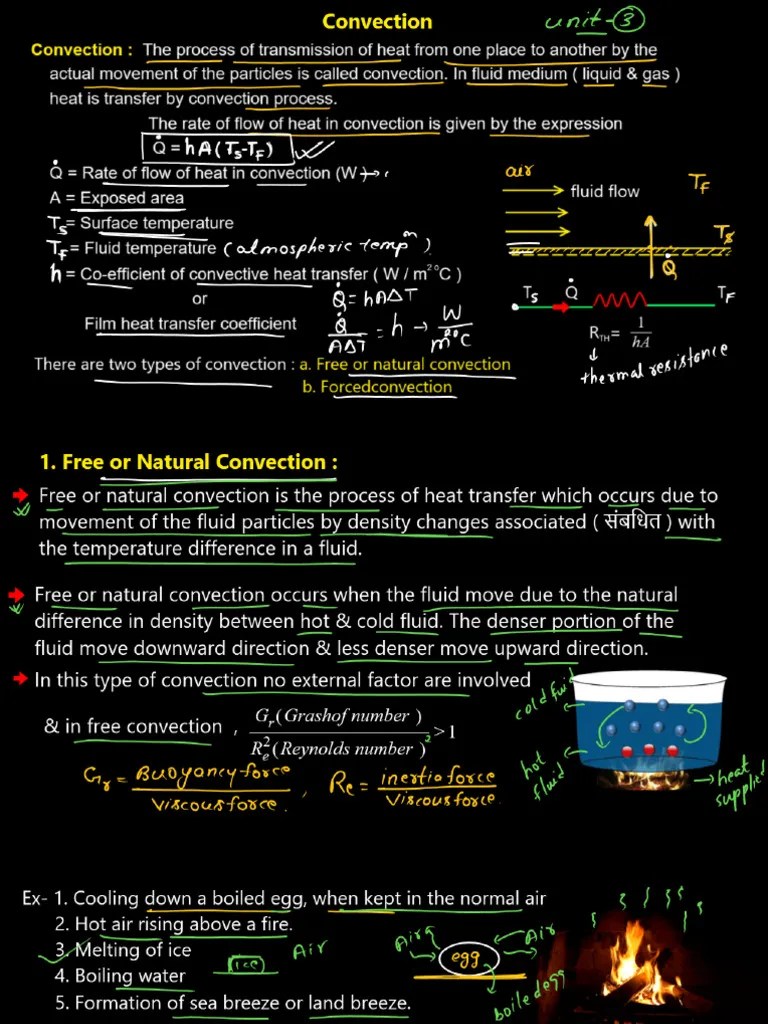 Convection
unit-3
Convection : The process of transmission of heat from one place to another by the
actual movement of the particles is called convection. In fluid medium ( liquid & gas )
heat is transfer by convection process.
The rate of flow of heat in convection is given by the expression
Q̇ = hA(Ts-TF)
Q̇ = Rate of flow of heat in convection (W
A = Exposed area
Ts = Surface temperature
TF = Fluid temperature (atmospheric tempm).
h = Co-efficient of convective heat transfer ( W / m²°C )
or
Film heat transfer coefficient
Q̇ = hAΔT
Q̇/AΔT = h → W/m²°C
air
fluid flow
TF
Ts
Q̇
Ts Q̇ TF
RTH = 1/hA
thermal resistance
There are two types of convection : a. Free or natural convection
b. Forcedconvection
1. Free or Natural Convection :
Free or natural convection is the process of heat transfer which occurs due to
movement of the fluid particles by density changes associated ( संबधित ) with
the temperature difference in a fluid.
Free or natural convection occurs when the fluid move due to the natural
difference in density between hot & cold fluid. The denser portion of the
fluid move downward direction & less denser move upward direction.
In this type of convection no external factor are involved
& in free convection , Gr(Grashof number ) / Re²(Reynolds number )² > 1
Gr = Buoyancy force / Viscous force , Re = inertia force / Viscous force
cold fluid
hot fluid
heat supplied
Ex- 1. Cooling down a boiled egg, when kept in the normal air
2. Hot air rising above a fire.
3. Melting of ice
4. Boiling water
5. Formation of sea breeze or land breeze.
ice
Air
Air
egg
Air
boiled egg